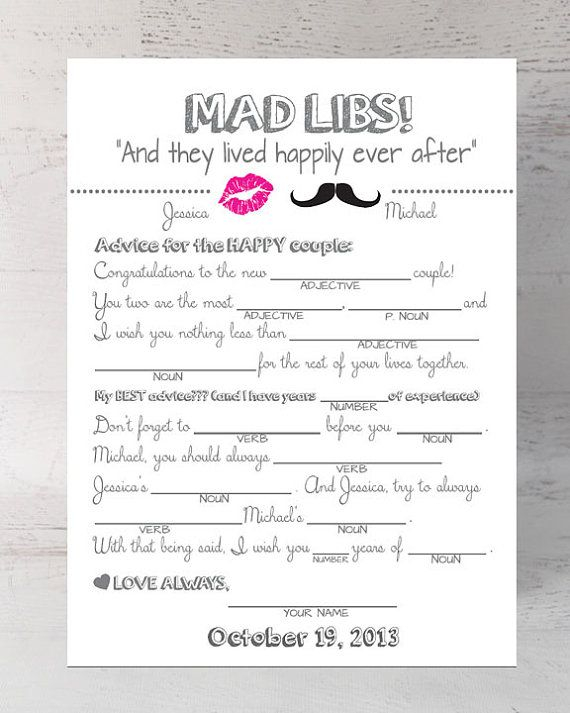 MAD LIBS!
"And they lived happily ever after"
Jessica Michael
Advice for the HAPPY couple:
Congratulations to the new ____________ couple!
ADJECTIVE
You two are the most ____________, ____________ and
ADJECTIVE P. NOUN
I wish you nothing less than ____________
ADJECTIVE
____________ for the rest of your lives together.
NOUN
My BEST advice??? (and I have years ________ of experience)
NUMBER
Don't forget to ____________ before you ________ .
VERB NOUN
Michael, you should always ____________
VERB
Jessica's ____________ . And Jessica, try to always
NOUN
____________ Michael's ________ .
VERB NOUN
With that being said, I wish you ____ years of ________ .
NUMBER NOUN
LOVE ALWAYS,
____________
YOUR NAME
October 19, 2013